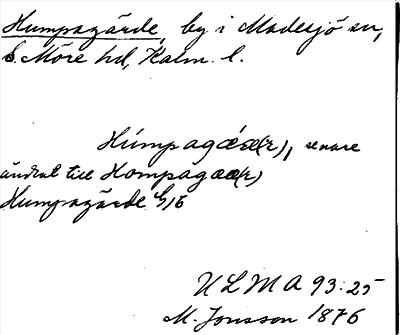 Humpagärde, by i Madesjö sn,
S. Möre hd, Kalm. l.
Húmpagáæ(r), senare
ändrat till Hompagææ(r)
Humpagärde 4/6
ULMA 93:25
M. Jonsson 1876